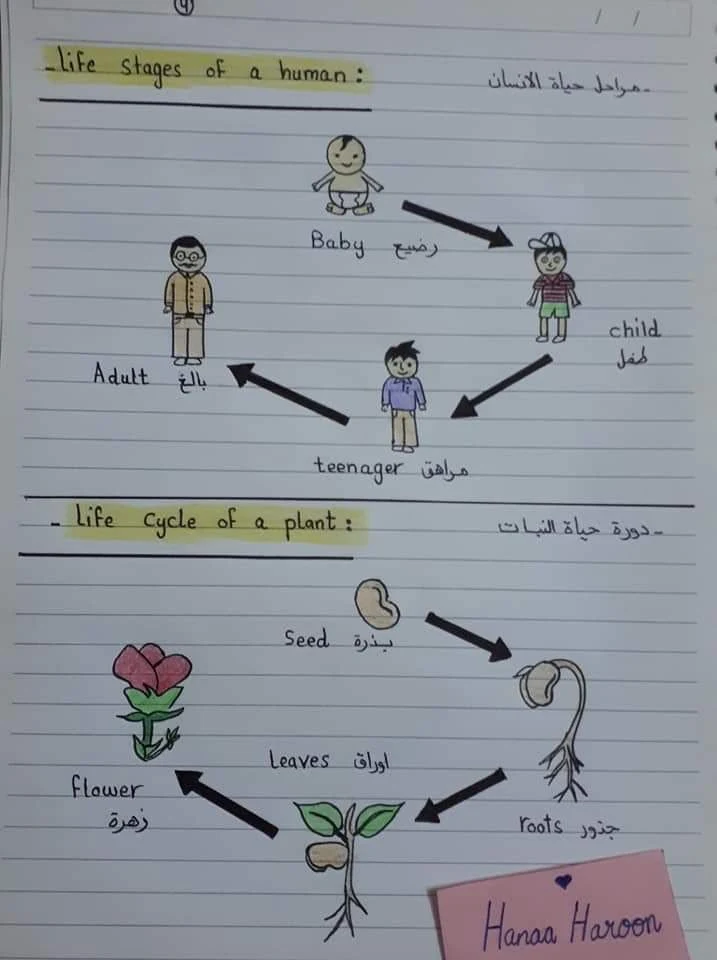 4
/ /
- life stages of a human :
- مراحل حياة الانسان
Baby رضيع
child
طفل
teenager مراهق
Adult بالغ
- life cycle of a plant :
- دورة حياة النبات
Seed بذرة
roots جذور
Leaves اوراق
flower
زهرة
Hanaa Haroon